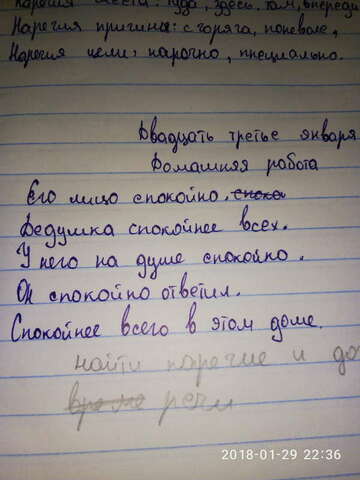 Наречия места: куда, здесь, там, впереди
Наречия причины: с горяча, поневоле,
Наречия цели: нарочно, специально.
Двадцать третье января
Домашняя работа
Его лицо спокойно.
Дедушка спокойнее всех.
У него на душе спокойно.
Он спокойно ответил.
Спокойнее всего в этом доме.
найти наречие и до
речи
2018-01-29 22:36